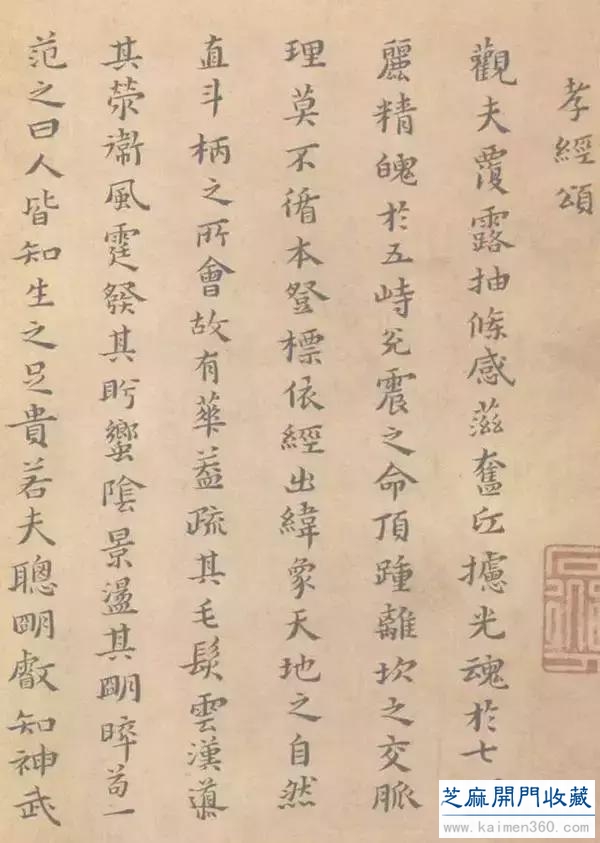 孝經頌
觀夫覆露抽條感滋奮攄光魂於七
麗精魄於五峙兌震之命頂踵離坎之交脈
理莫不循本登標依經出緯象天地之自然
直斗柄之所會故有華蓋疏其毛髮雲漢
其滎衛風霆發其蠁陰景盪其明晬苟一
范之曰人皆知生之足貴若夫聰明叡知神武
芝麻開門收藏
www.kaimen360.com